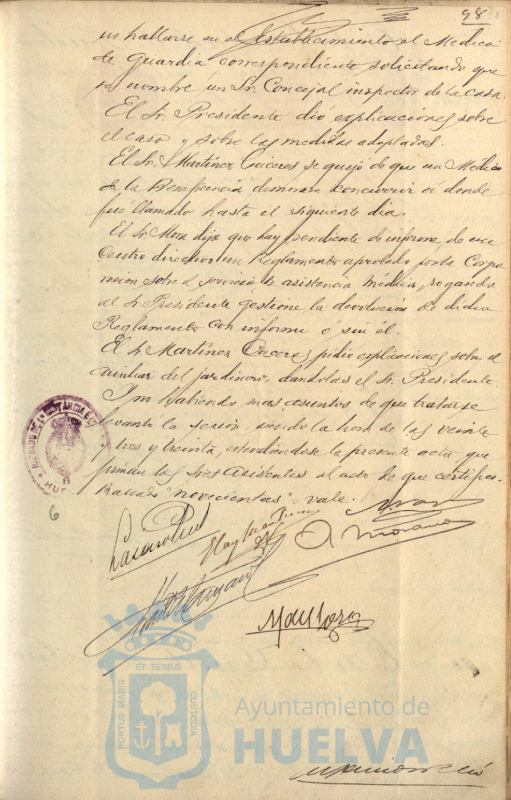 98
no hallarse en el establecimiento el Medico
de guardia correspondiente solicitando que
se nombre un Sr. Concejal inspector de la casa.
El Sr. Presidente dió explicaciones sobre
el caso y sobre las medidas adoptadas.
El Sr. Martínez Caceres se quejó de que un Medico
de la Beneficencia demorase concurrir a donde
fué llamado hasta el siguiente dia.
El Sr. Mora dijo que hay pendiente de informe de ese
Centro directivo un Reglamento aprobado por la Corpo
racion sobre el servicio de asistencia médica, rogando
al Sr. Presidente gestione la devolucion de dicho
Reglamento con informe ó sin él.
El Sr. Martínez Caceres pidió explicaciones sobre el
auxiliar del jardinero, dandolas el Sr. Presidente.
Y no habiendo mas asuntos de que tratarse
levanto la sesion siendo la hora de las veinte
y tres y treinta, extendiéndose la presente acta que
firman los Sres asistentes al acto de que certifico.
"novecientas" = vale.
A. Moreno
PORTUS MARIS ET TERRÆ CUSTODIA
Ayuntamiento de
HUELVA